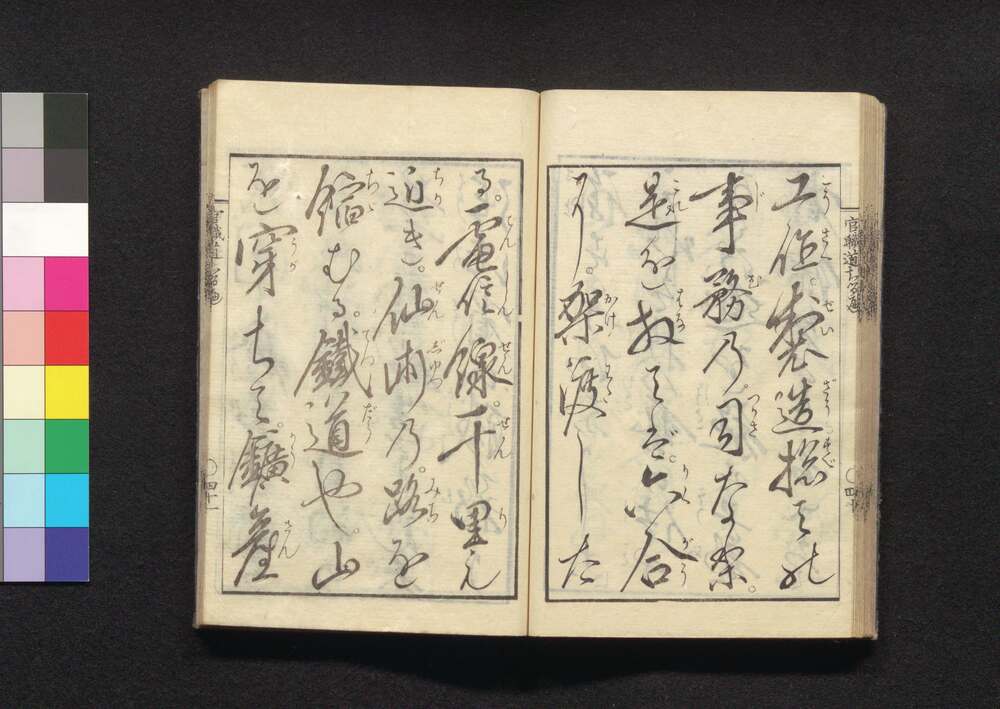 工作。製造揔ての
事務乃。司なり。
是を放てば六合
に。架渡した
官職道志留遍
四十
る。電信線。千里も
近き。仙術乃。路を
縮むる。鐵道や。山
を穿ちて。鑛産
四十一